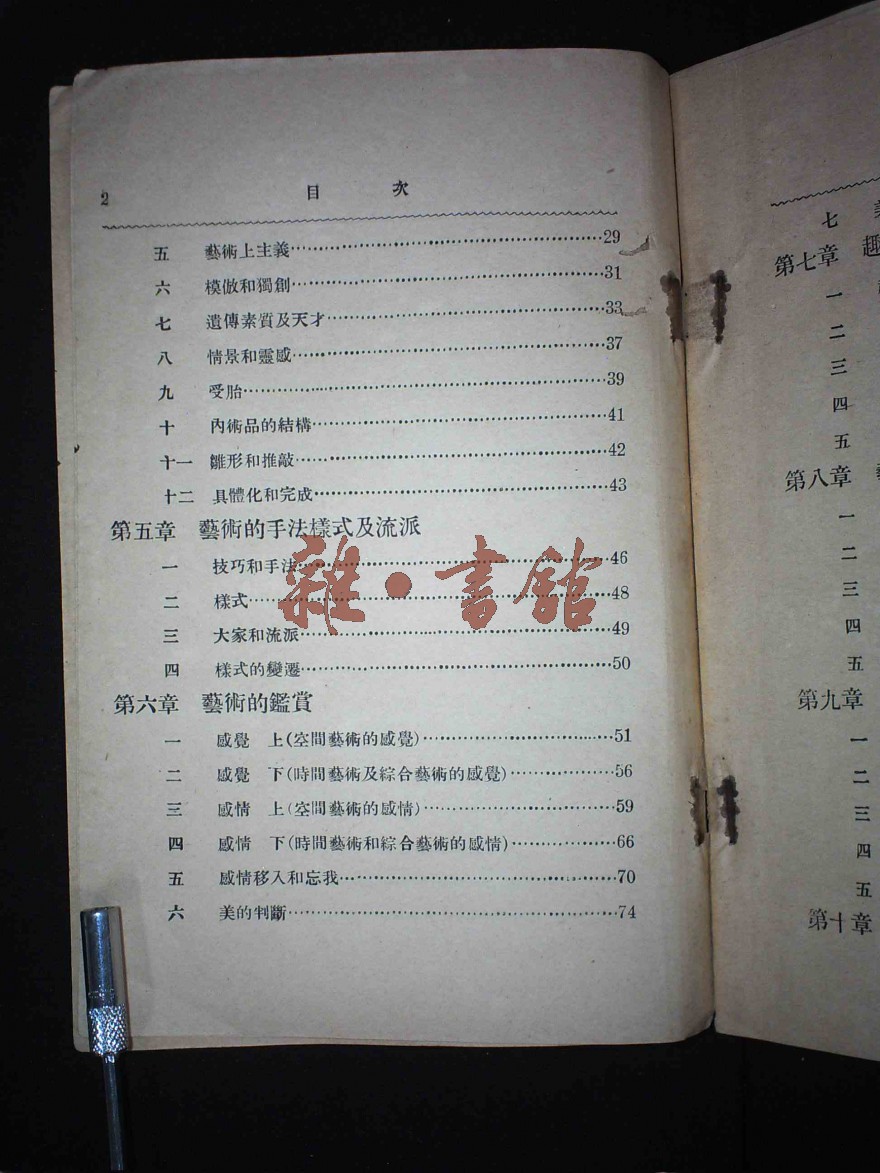 2 目 次
五 藝術上主義 29
六 模倣和獨創 31
七 遺傳素質及天才 33
八 情景和靈感 37
九 受胎 39
十 內術品的結構 41
十一 雛形和推敲 42
十二 具體化和完成 43
第五章 藝術的手法樣式及流派
一 技巧和手法 46
二 樣式 48
三 大家和流派 49
四 樣式的變遷 50
第六章 藝術的鑑賞
一 感覺 上(空間藝術的感覺) 51
二 感覺 下(時間藝術及綜合藝術的感覺) 56
三 感情 上(空間藝術的感情) 59
四 感情 下(時間藝術和綜合藝術的感情) 66
五 感情移入和忘我 70
六 美的判斷 74
雜·書舘
七
第七章 趣
一
二
三
四
五
第八章
一
二
三
四
五
第九章
一
二
三
四
五
第十章